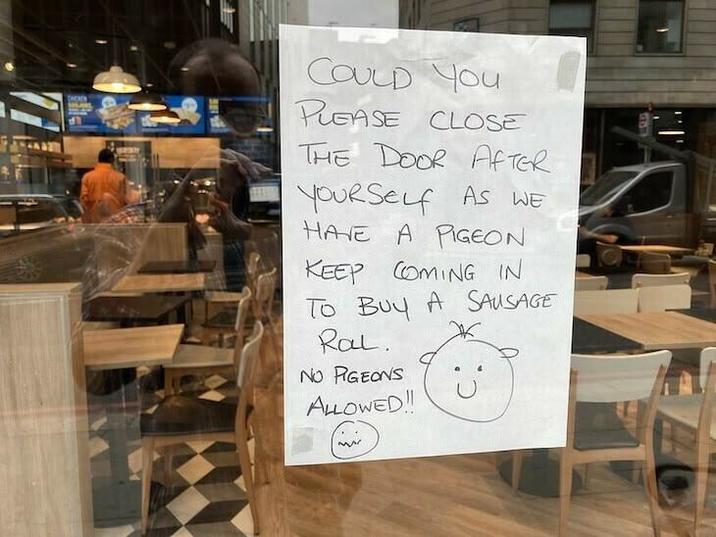 COULD YOU
PLEASE CLOSE
THE DOOR AFTER
YOURSELF AS WE
HAVE A PIGEON
KEEP COMING IN
TO BUY A SAUSAGE
ROLL.
NO PIGEONS
ALLOWED!!
CHICKEN